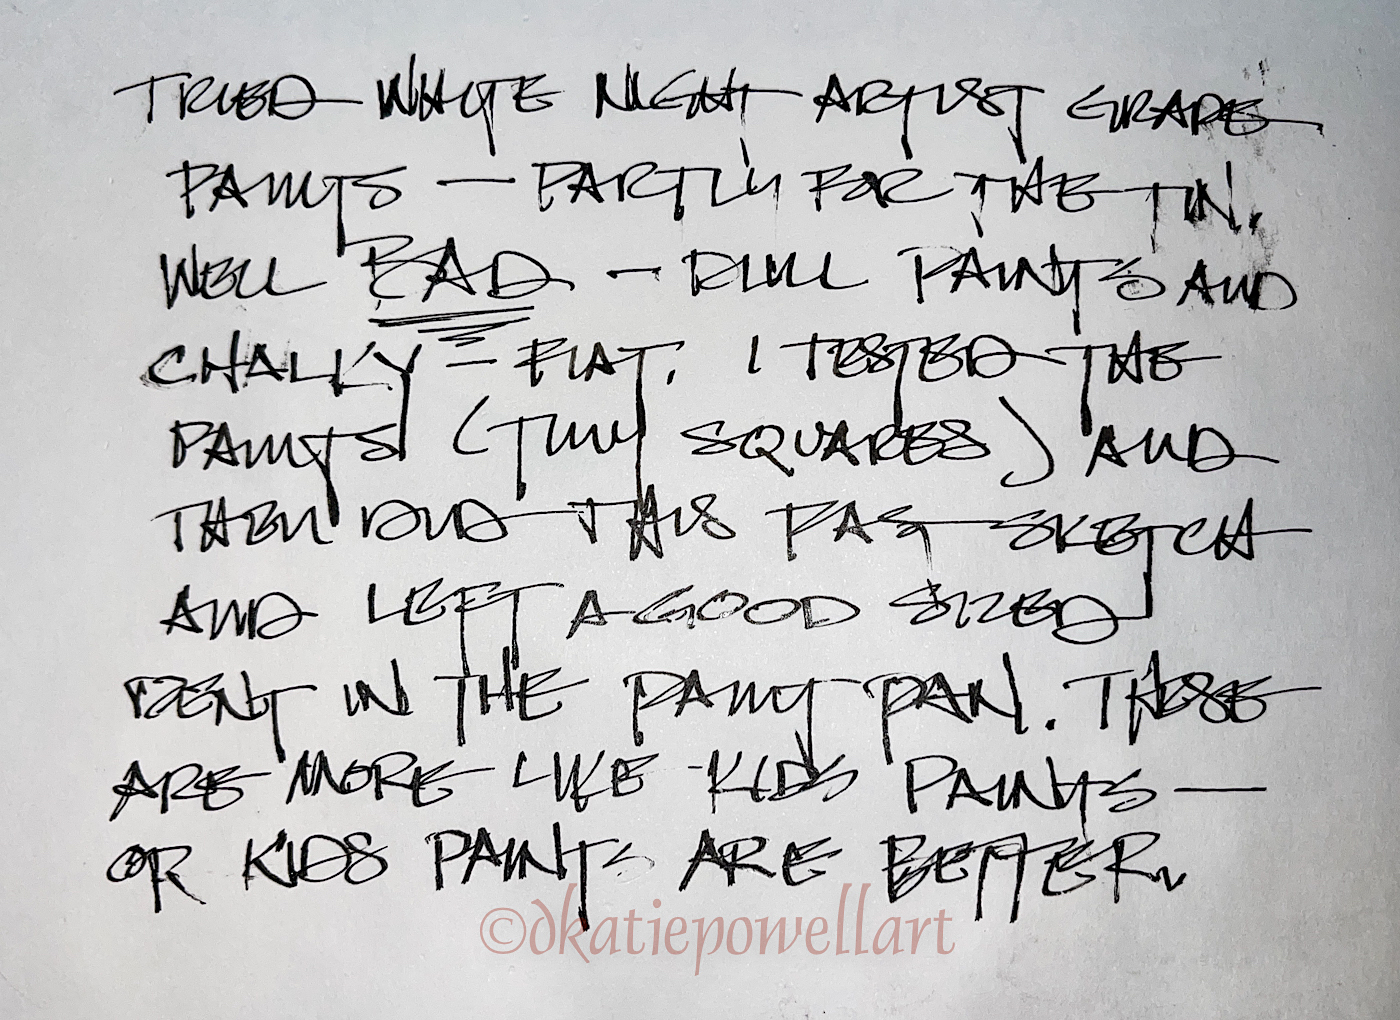 TRIED WHITE NIGHT ARTIST GRADE
PAINTS — PARTLY FOR THE TIN.
WELL BAD — DULL PAINTS AND
CHALKY — FLAT. I TESTED THE
PAINTS (TINY SQUARES) AND
THEN DID THIS PAST SKETCH
AND LEFT A GOOD SIZED
DENT IN THE PAINT PAN. THESE
ARE MORE LIKE KIDS PAINTS —
OR KIDS PAINTS ARE BETTER.
©dkatiepowellart